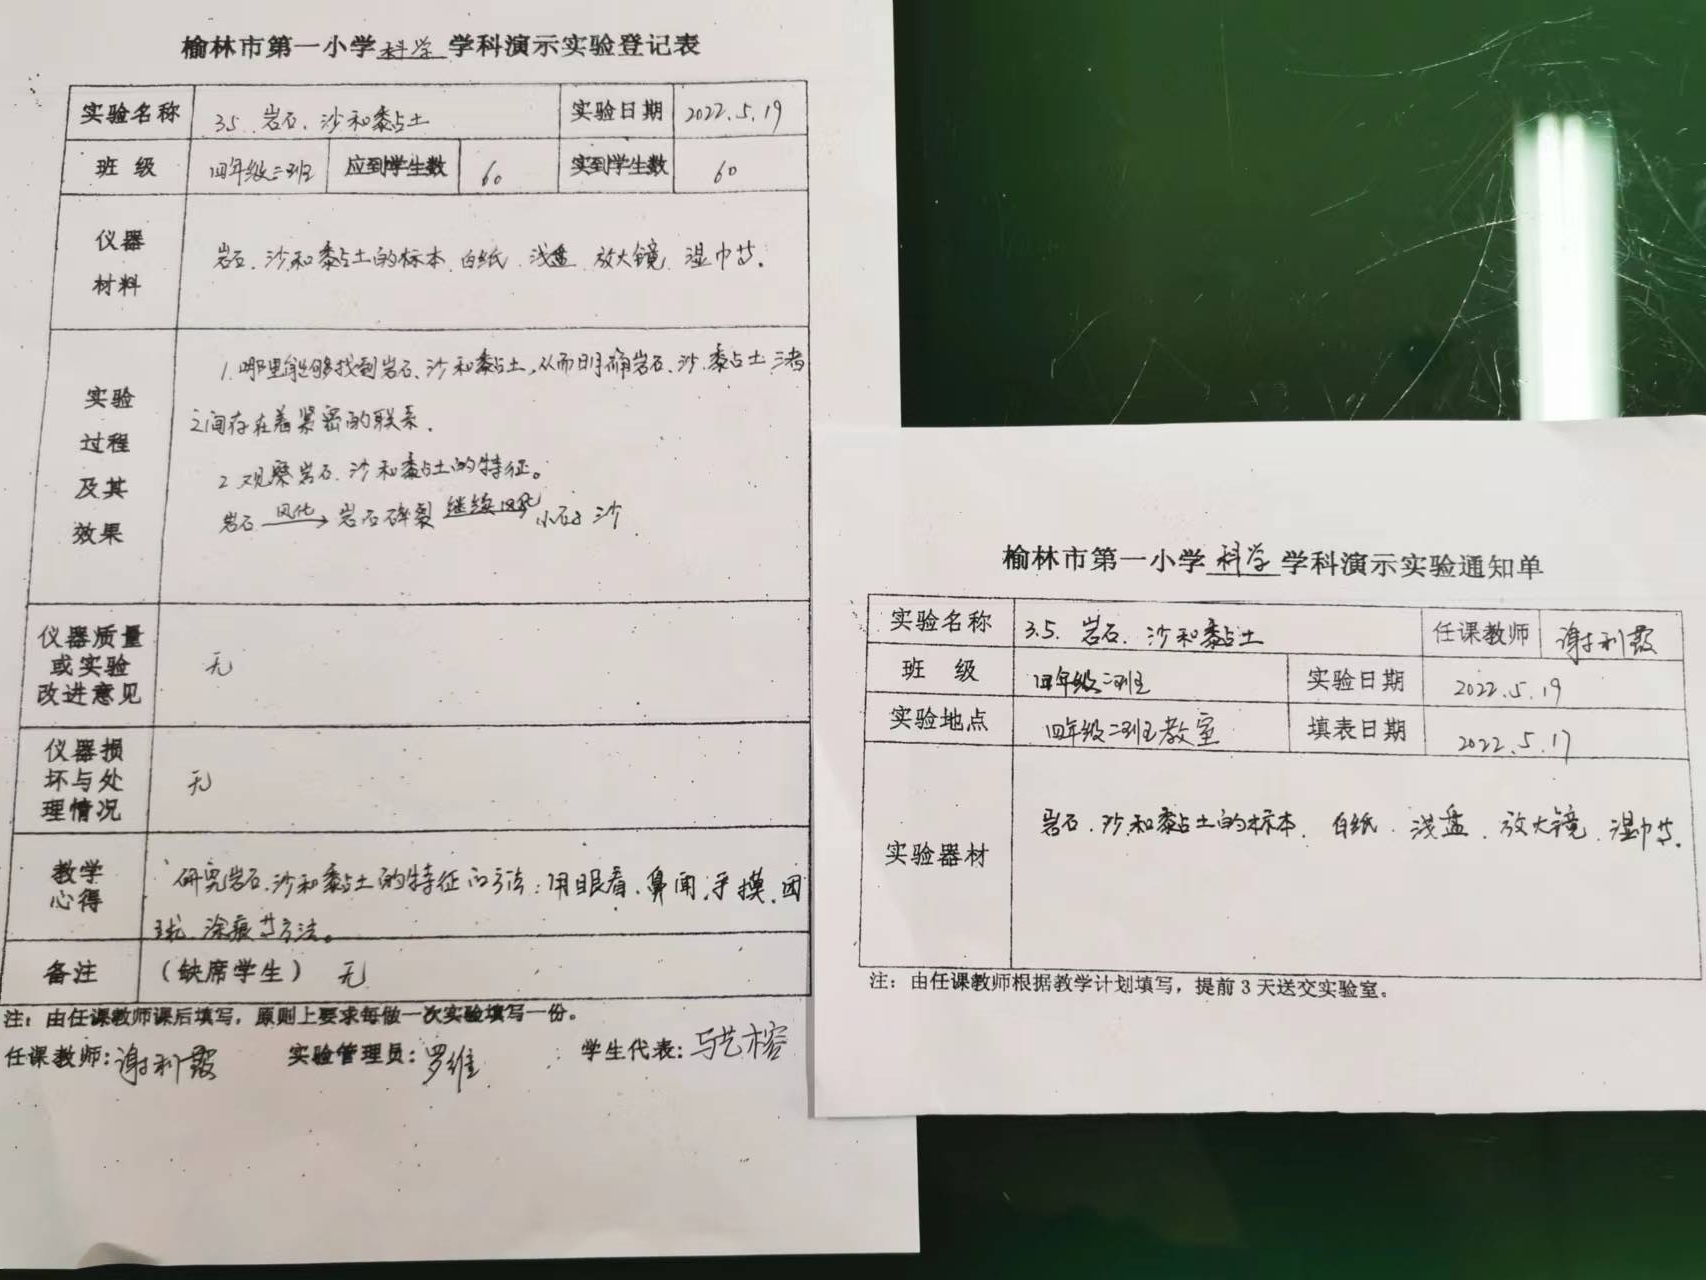 榆林市第一小学科学学科演示实验登记表
实验名称 3.5 岩石、沙和黏土 实验日期 2022.5.19
班 级 四年级二班 应到学生数 60 实到学生数 60
仪器
材料
岩石、沙和黏土的标本、白纸、浅盘、放大镜、湿巾等。
实验
过程
及其
效果
1.哪里能够找到岩石、沙和黏土,从而明确岩石、沙、黏土三者
之间存在着紧密的联系.
2.观察岩石、沙和黏土的特征。
岩石 风化→ 岩石碎裂 继续风化 小石子 沙
仪器质量
或实验
改进意见
无
仪器损
坏与处
理情况
无
教学
心得
研究岩石、沙和黏土的特征的方法:用眼看、鼻闻、手摸、团
球、涂痕等方法。
备注 (缺席学生) 无
注:由任课教师课后填写,原则上要求每做一次实验填写一份。
任课教师:谢利霞 实验管理员:罗维 学生代表:马艺榕
榆林市第一小学科学学科演示实验通知单
实验名称 3.5. 岩石、沙和黏土 任课教师 谢利霞
班 级 四年级二班 实验日期 2022.5.19
实验地点 四年级二班教室 填表日期 2022.5.17
实验器材 岩石、沙和黏土的标本、白纸、浅盘、放大镜、湿巾等.
注:由任课教师根据教学计划填写,提前3天送交实验室。